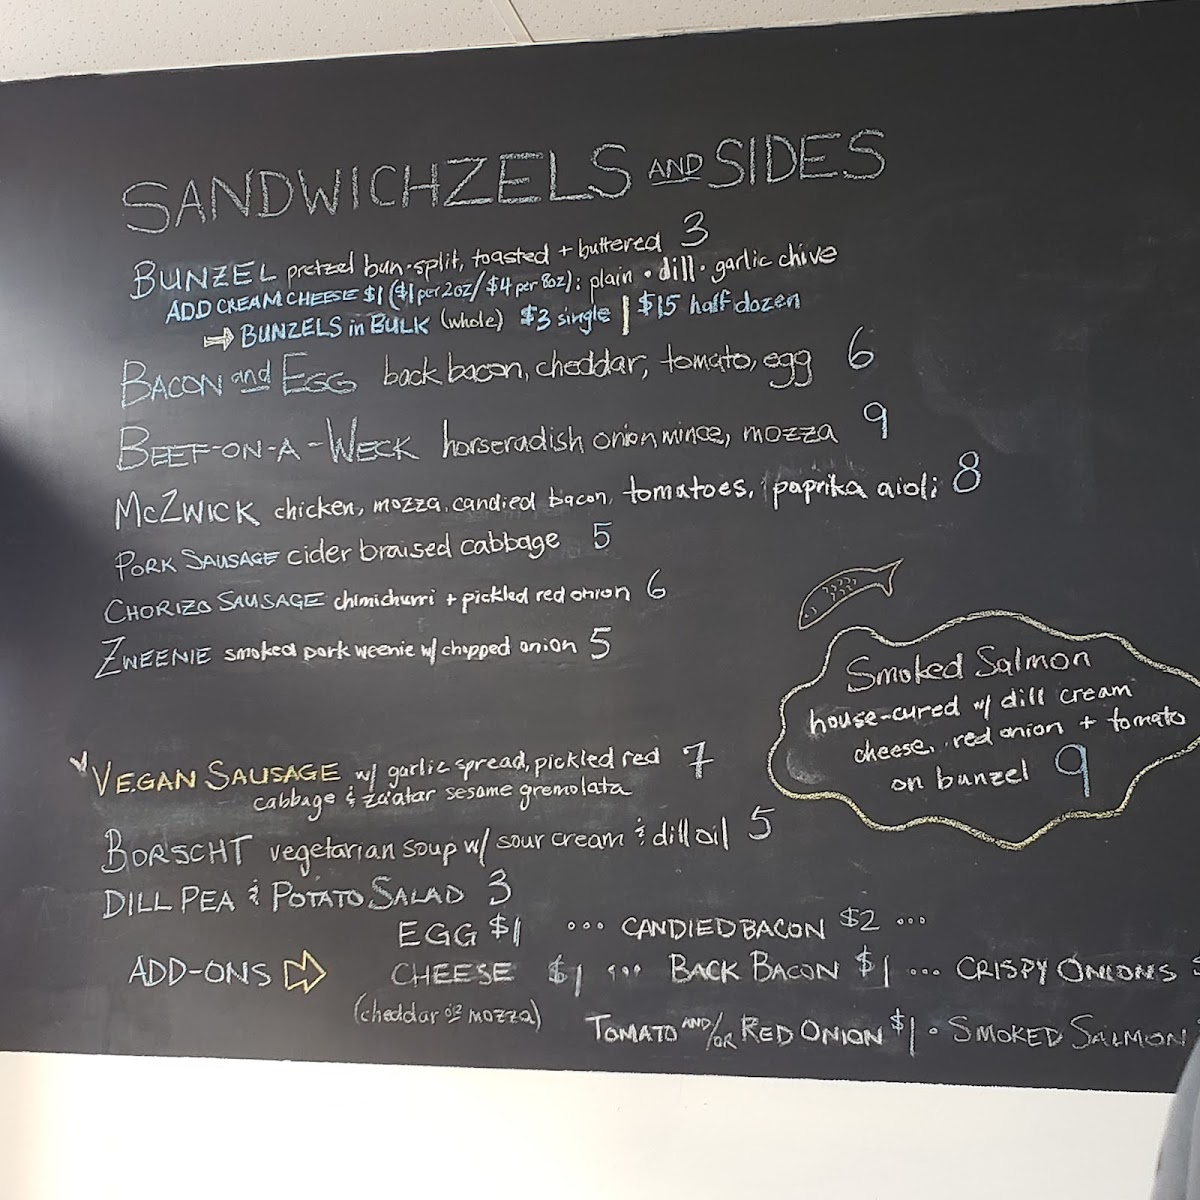 SANDWICHZELS AND SIDES
BUNZEL pretzel bun·split, toasted + buttered 3
ADD CREAM CHEESE $1 ($1 per 2oz/$4 per 8oz): plain · dill · garlic chive
⇨ BUNZELS in BULK (whole) $3 single | $15 half dozen
BACON and EGG back bacon, cheddar, tomato, egg 6
BEEF-ON-A-WECK horseradish onion mince, mozza 9
MCZWICK chicken, mozza, candied bacon, tomatoes, paprika aioli 8
PORK SAUSAGE cider braised cabbage 5
CHORIZO SAUSAGE chimichurri + pickled red onion 6
ZWEENIE smoked pork weenie w/ chopped onion 5
Smoked Salmon
house-cured w/ dill cream
cheese, red onion + tomato
on bunzel 9
VEGAN SAUSAGE w/ garlic spread, pickled red 7
cabbage & za'atar sesame gremolata
BORSCHT vegetarian soup w/ sour cream & dill oil 5
DILL PEA & POTATO SALAD 3
EGG $1 ... CANDIED BACON $2 ...
ADD-ONS ⇨ CHEESE $1 ... BACK BACON $1 ... CRISPY ONIONS
(cheddar or mozza)
TOMATO AND/OR RED ONION $1 · SMOKED SALMON